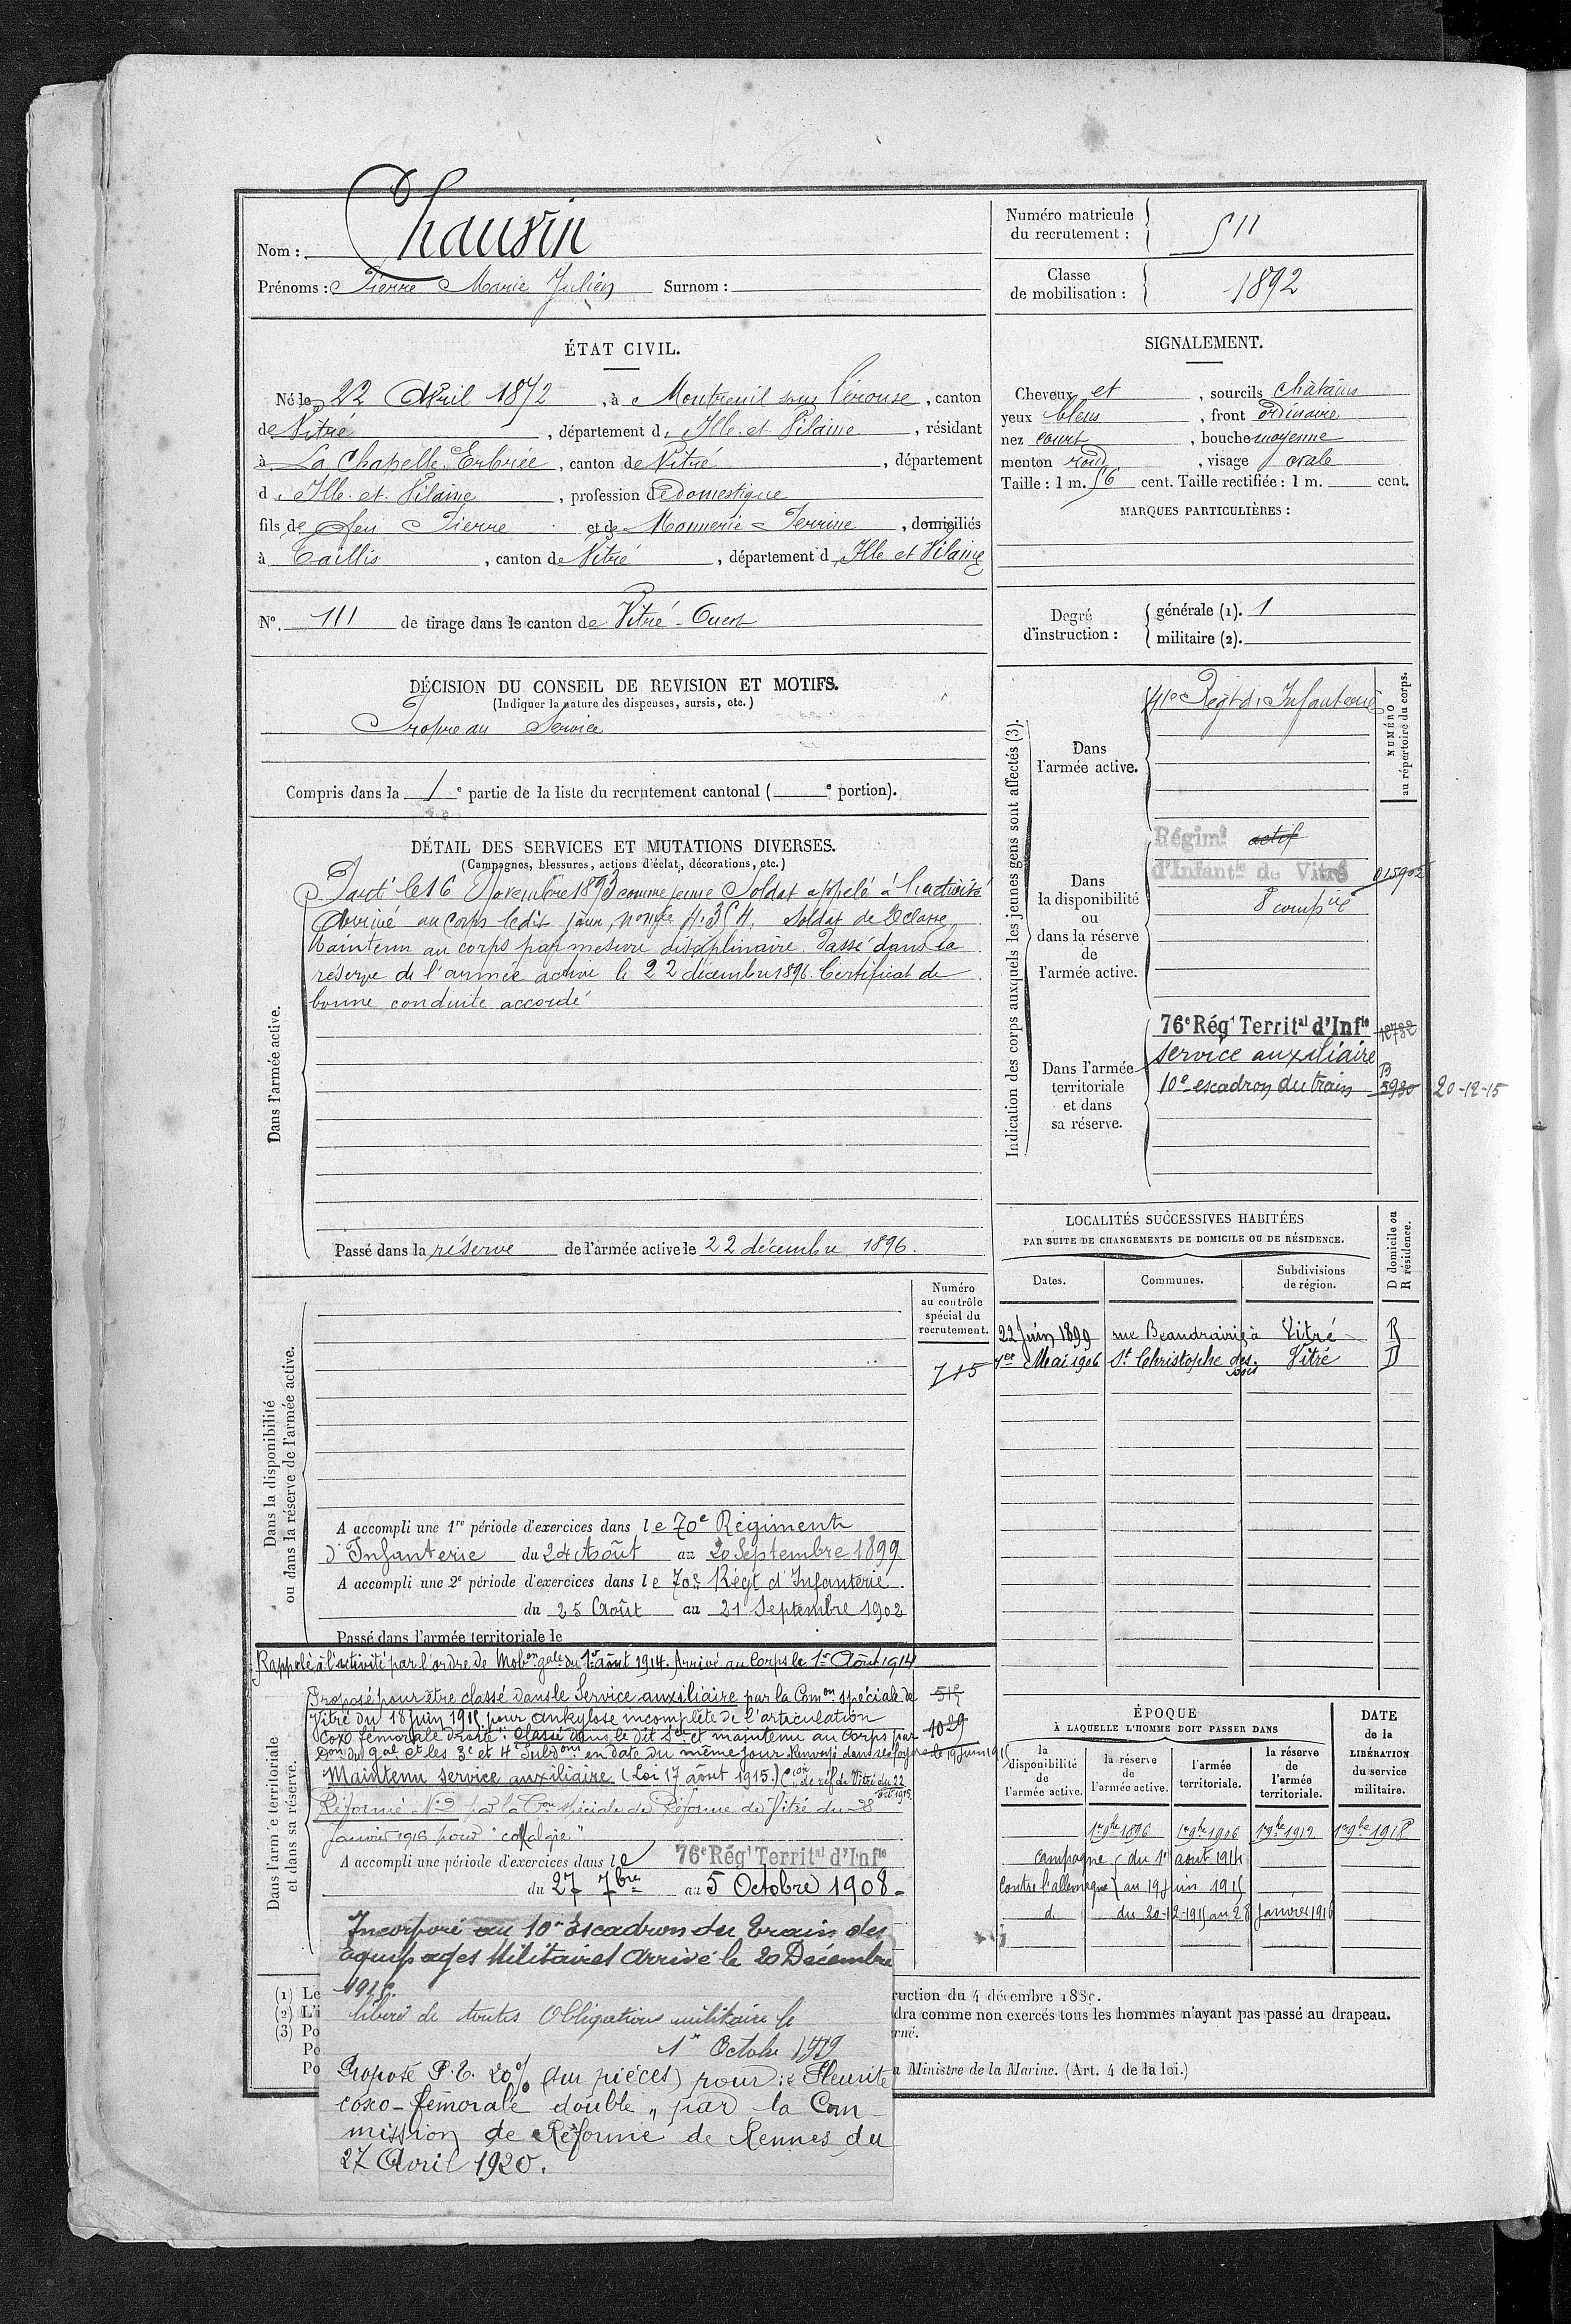 Nom : Chauvin
Prénoms : Pierre Marie Julien Surnom :
Numéro matricule
du recrutement : 511
Classe
de mobilisation : 1892
ÉTAT CIVIL.
Né le 22 Avril 1872, à Montreuil sous Pérouse, canton
de Vitré, département d'Ille et Vilaine, résidant
à La Chapelle Erbrée, canton de Vitré, département
d'Ille et Vilaine, profession de domestique
fils de feu Pierre et de Monnerie Perrine, domiciliés
à Taillis, canton de Vitré, département d'Ille et Vilaine
N° 111 de tirage dans le canton de Vitré-Ouest
SIGNALEMENT.
Cheveux et, sourcils châtains
yeux bleus, front ordinaire
nez court, bouche moyenne
menton rond, visage ovale
Taille : 1 m. 56 cent. Taille rectifiée : 1 m. cent.
MARQUES PARTICULIÈRES :
Degré
d'instruction :
générale (1). 1
militaire (2).
DÉCISION DU CONSEIL DE REVISION ET MOTIFS.
(Indiquer la nature des dispenses, sursis, etc.)
Propre au Service
Compris dans la 1e partie de la liste du recrutement cantonal ( e portion).
DÉTAIL DES SERVICES ET MUTATIONS DIVERSES.
(Campagnes, blessures, actions d'éclat, décorations, etc.)
Dans l'armée active.
Parti le 16 Novembre 1893 comme jeune Soldat appelé à l'activité
Arrivé au Corps ledit jour, n° mle 4.354. Soldat de 2e classe
Maintenu au corps par mesure disciplinaire. Passé dans la
réserve de l'armée active le 22 décembre 1896. Certificat de
bonne conduite accordé
Passé dans la réserve de l'armée active le 22 décembre 1896.
Indication des corps auxquels les jeunes gens sont affectés (3).
NUMÉRO
au répertoire du corps.
Dans
l'armée active.
41e Régt d'Infanterie
Dans
la disponibilité
ou
dans la réserve
de
l'armée active.
Régimt actif
d'Infantie de Vitré
8 compie
015902
Dans l'armée
territoriale
et dans
sa réserve.
76e Régt Territal d'Infie 12782
service auxiliaire
10e escadron du train B 5930 20-12-15
LOCALITÉS SUCCESSIVES HABITÉES
PAR SUITE DE CHANGEMENTS DE DOMICILE OU DE RÉSIDENCE.
D domicile ou
R résidence.
Dates.
Communes.
Subdivisions
de région.
22 Juin 1899 rue Beaudrairie à Vitré R
1er Mai 1906 St Christophe des bois Vitré D
Dans la disponibilité
ou dans la réserve de l'armée active.
Numéro
au contrôle
spécial du
recrutement.
715
A accompli une 1re période d'exercices dans le 70e Régiment
d'Infanterie du 24 Août au 20 Septembre 1899
A accompli une 2e période d'exercices dans le 70e Régt d'Infanterie
du 25 Août au 21 Septembre 1902
Passé dans l'armée territoriale le
Rappelé à l'activité par l'ordre de Mobon gale du 1er août 1914. Arrivé au Corps le 1er Août 1914
Dans l'armée territoriale
et dans sa réserve.
Proposé pour être classé dans le Service auxiliaire par la Comon spéciale de
Vitré du 18 juin 1915 pour ankylose incomplète de l'articulation
coxo fémorale droite". Classé dans le dit Sce et maintenu au Corps par
Don du Gal Ct les 3e et 4e Subdons en date du même jour. Renvoyé dans ses foyers le 19 juin 1915
Maintenu service auxiliaire (Loi 17 août 1915.) Con de réf de Vitré du 22 oct 1915.
Réformé N°2 par la Con spéciale de Réforme de Vitré du 28
janvier 1916 pour "coxalgie"
1029
A accompli une période d'exercices dans le 76e Régt Territal d'Infie
du 27 7bre au 5 Octobre 1908.
Incorporé au 10e Escadron du Train des
équipages Militaires Arrivé le 20 Décembre
1915.
Libéré de toutes Obligations militaire le
1er Octobre 1919
Proposé P.T. 20% (sur pièces) pour : "Pleurite
coxo-fémorale double" par la Com-
mission de Réforme de Rennes du
27 Avril 1920.
ÉPOQUE
À LAQUELLE L'HOMME DOIT PASSER DANS
la
disponibilité
de
l'armée active.
la réserve
de
l'armée active.
l'armée
territoriale.
la réserve
de
l'armée
territoriale.
DATE
de la
LIBÉRATION
du service
militaire.
1er 9bre 1896 1er 9bre 1906 1er 9bre 1912 1er 9bre 1918
campagne du 1er aout 1914
contre l'allemagne au 19 juin 1915
d. du 20-12-1915 au 28 Janvier 1916
(1) Le
(2) L'i
(3) Po
Po
Po
ruction du 4 décembre 1889.
dra comme non exercés tous les hommes n'ayant pas passé au drapeau.
rné.
u Ministre de la Marine. (Art. 4 de la loi.)